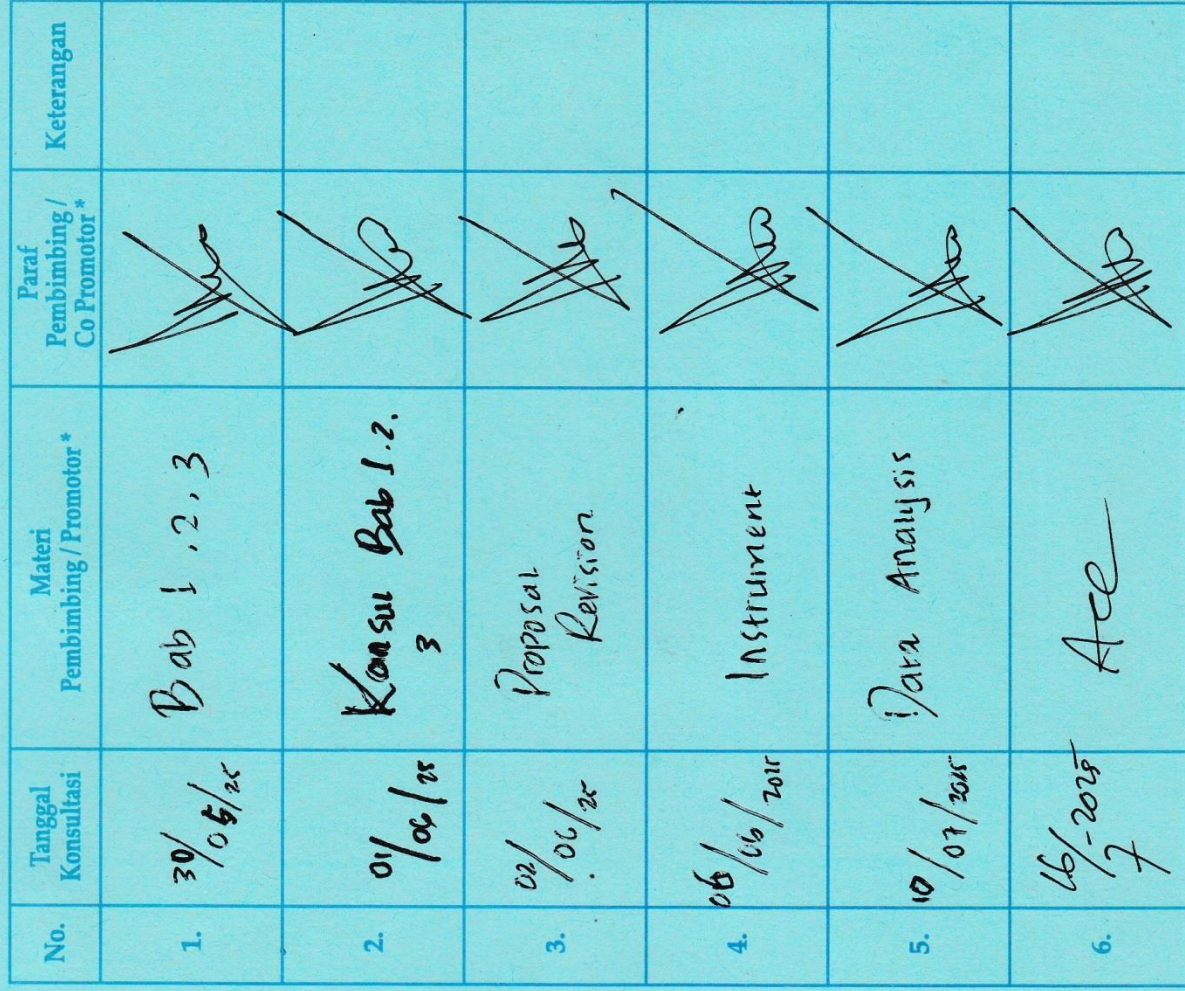 No.
Tanggal
Konsultasi
Materi
Pembimbing / Promotor *
Paraf
Pembimbing /
Co Promotor *
Keterangan
1.
30/05/25
Bab 1 . 2 . 3
2.
01/06/25
Konsul Bab 1. 2.
3
3.
02/06/25
Proposal
Revision
4.
06/06/2025
Instrument
5.
10/07/2025
Data Analysis
6.
16/7-2025
Acc